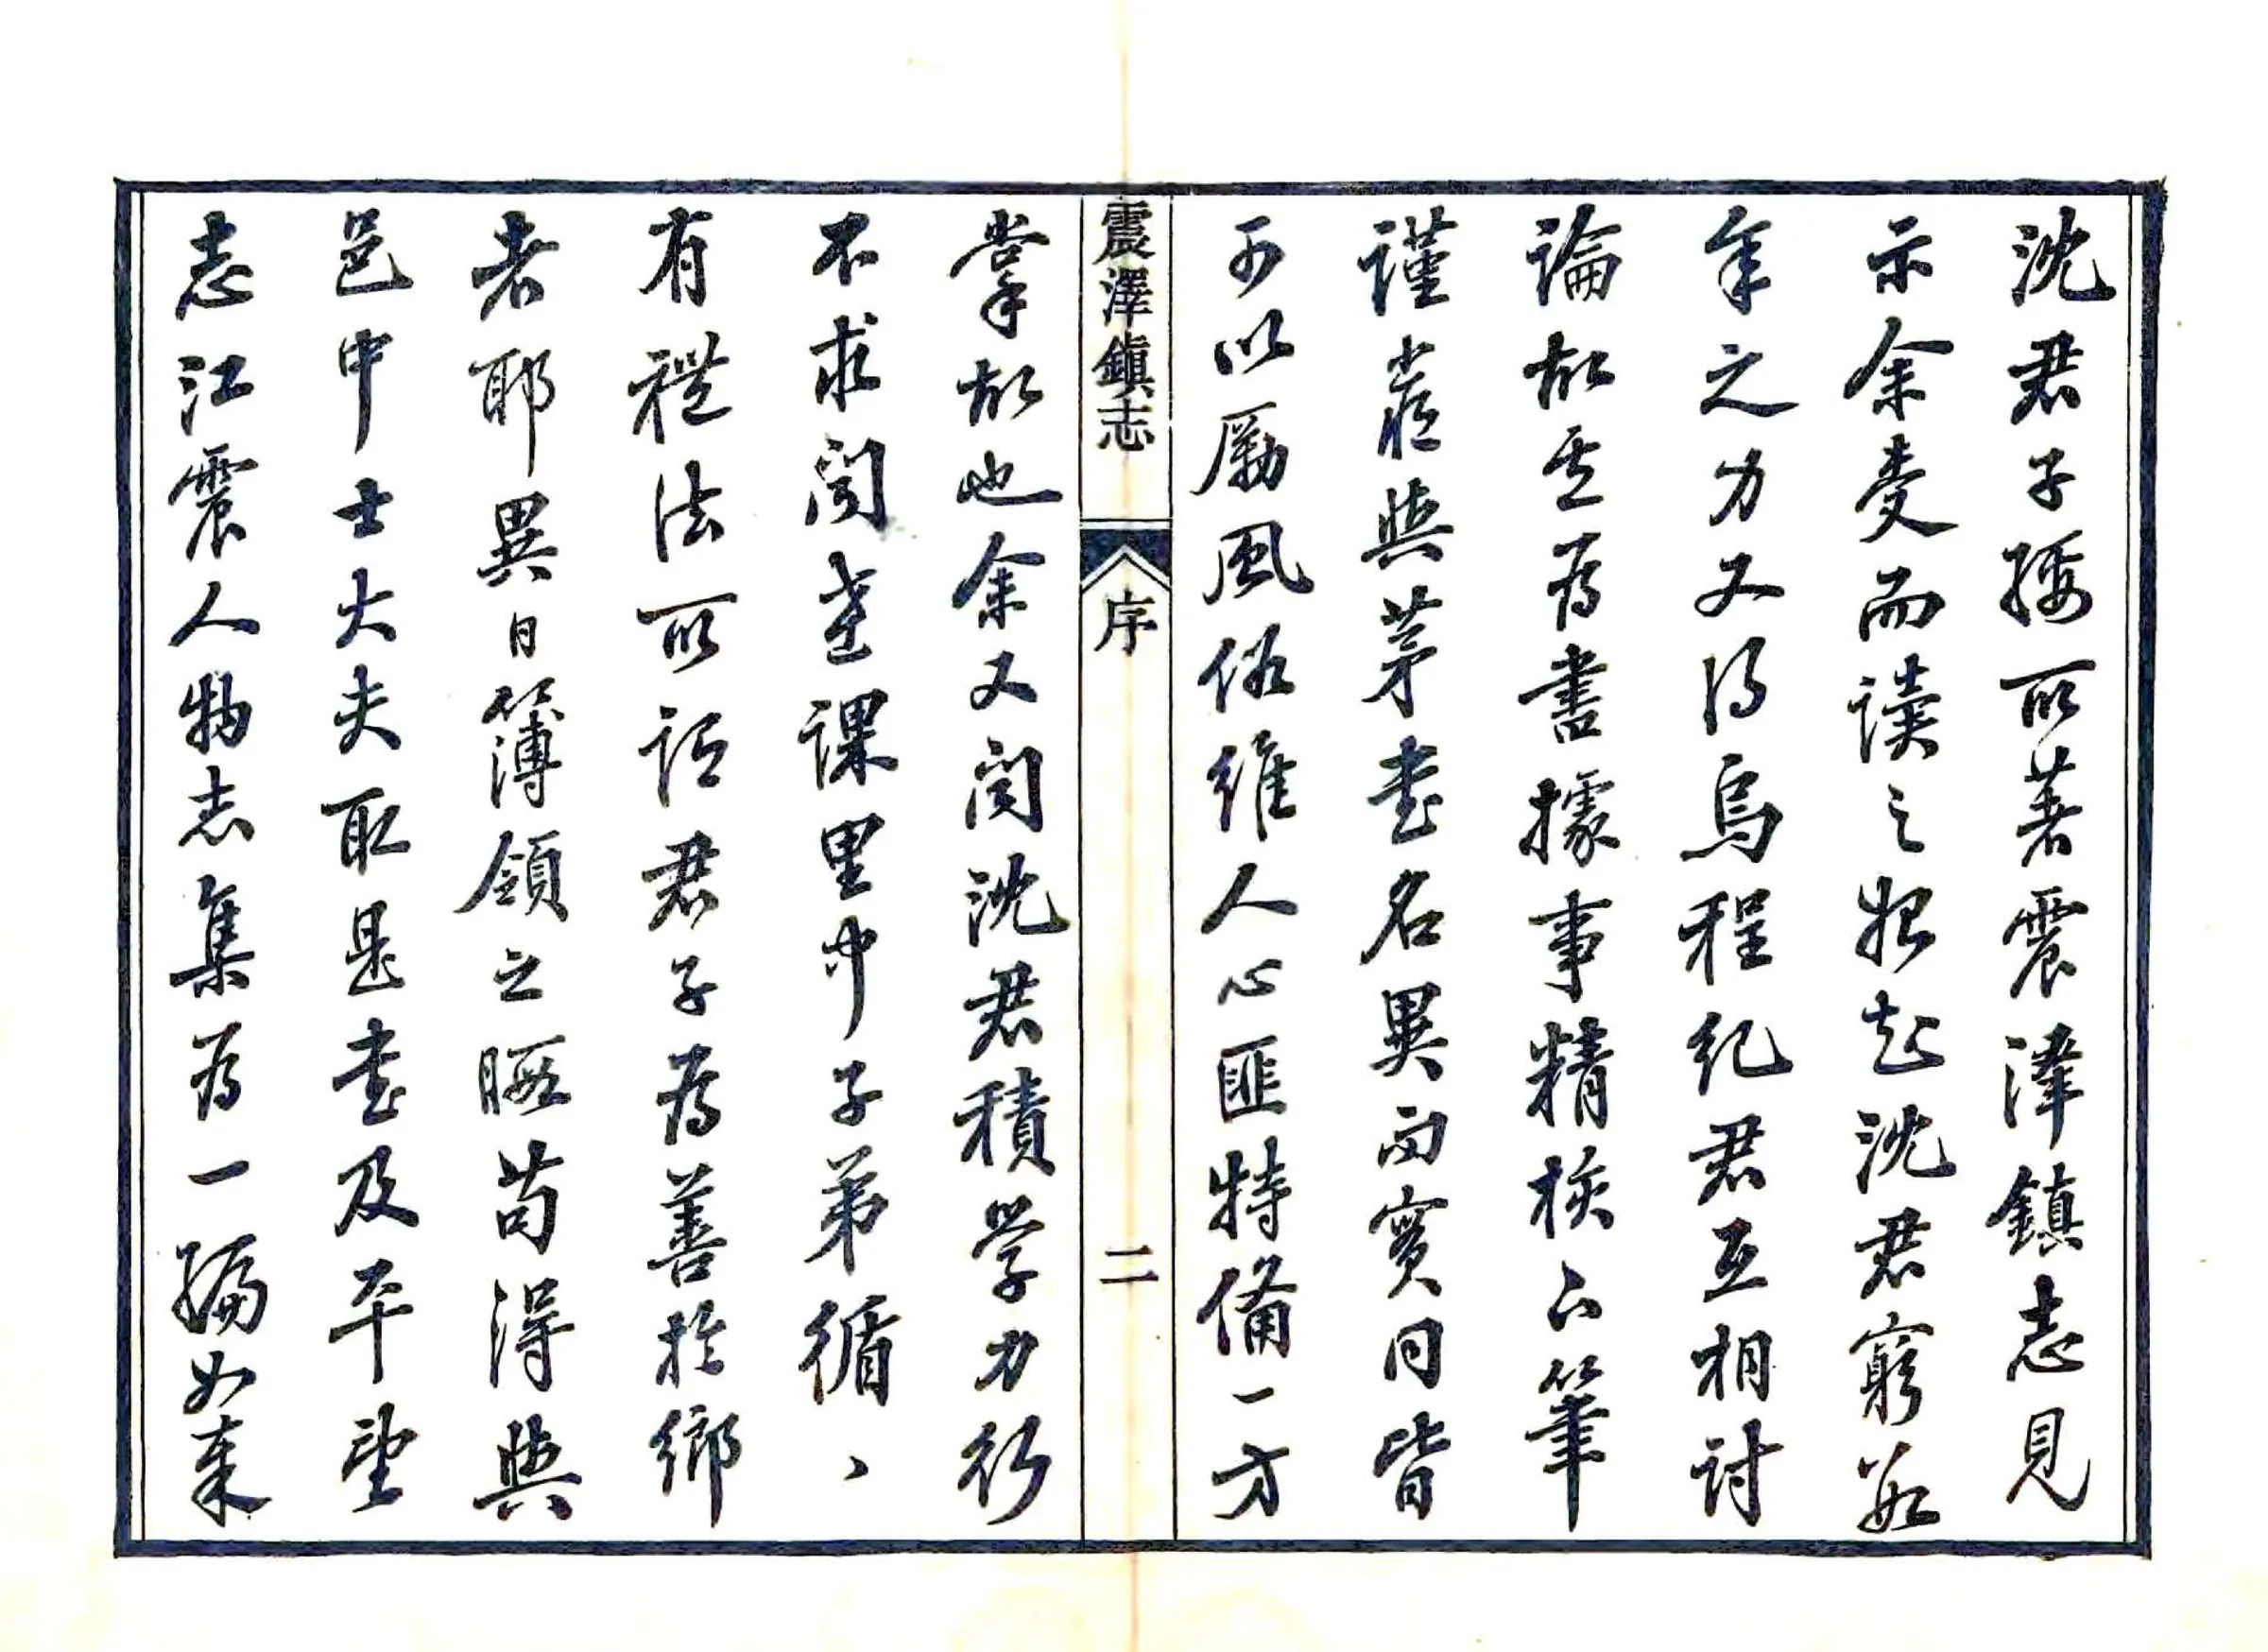 沈君子掞所著震澤鎮志見
示余受而讀之於是知沈君窮數
年之力又得烏程紀君互相討
論故其爲書據事精核下筆
謹嚴與茅書名異而實同皆
可以勵風俗維人心匪特備一方
震澤鎮志
序
二
掌故也余又聞沈君積學力行
不求聞達課里中子弟循、
有禮法所謂君子爲善於鄉
者耶異日簿領之暇苟得與
邑中士大夫取是書及平望
志江震人物志集爲一編如